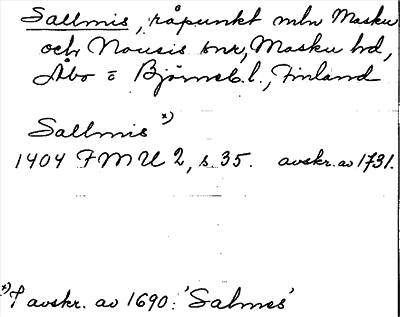 Sallmis, råpunkt mln Masku
och Nousis snr, Masku hd,
Åbo o Björneb. l., Finland
Sallmis x)
1404 FMU 2, s. 35. avskr. av 1731.
x) I avskr. av 1690: 'Salmes'